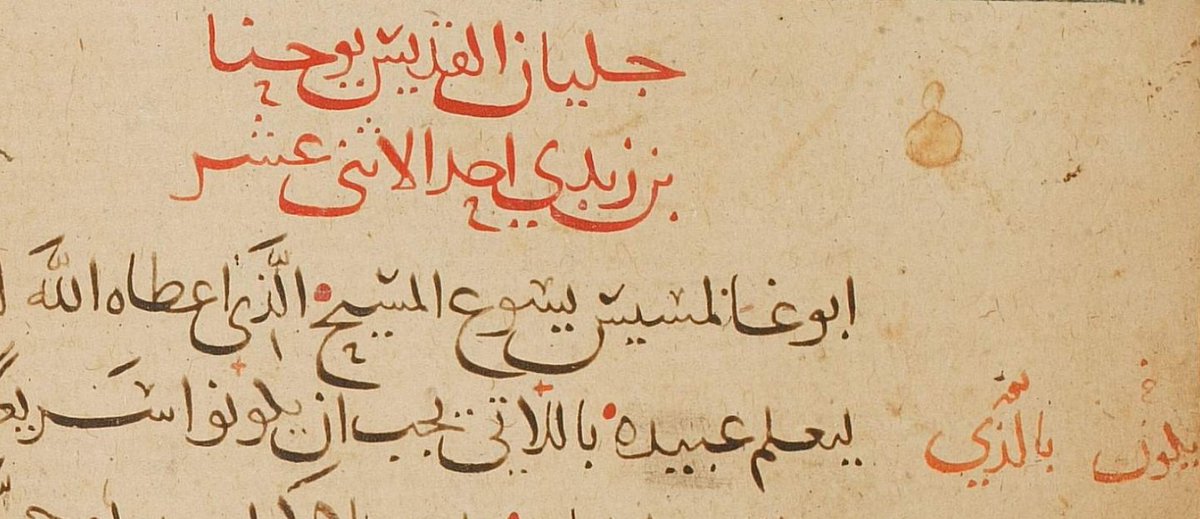 جليان القديس يوحنا
بن زبدي احد الاثنى عشر
ابوغالمسيس يسوع المسيح الَّذي اعطاه اللّه
ليعلم عبيده باللاتي يجب ان يكونوا سريع
بالَّذي
يكون